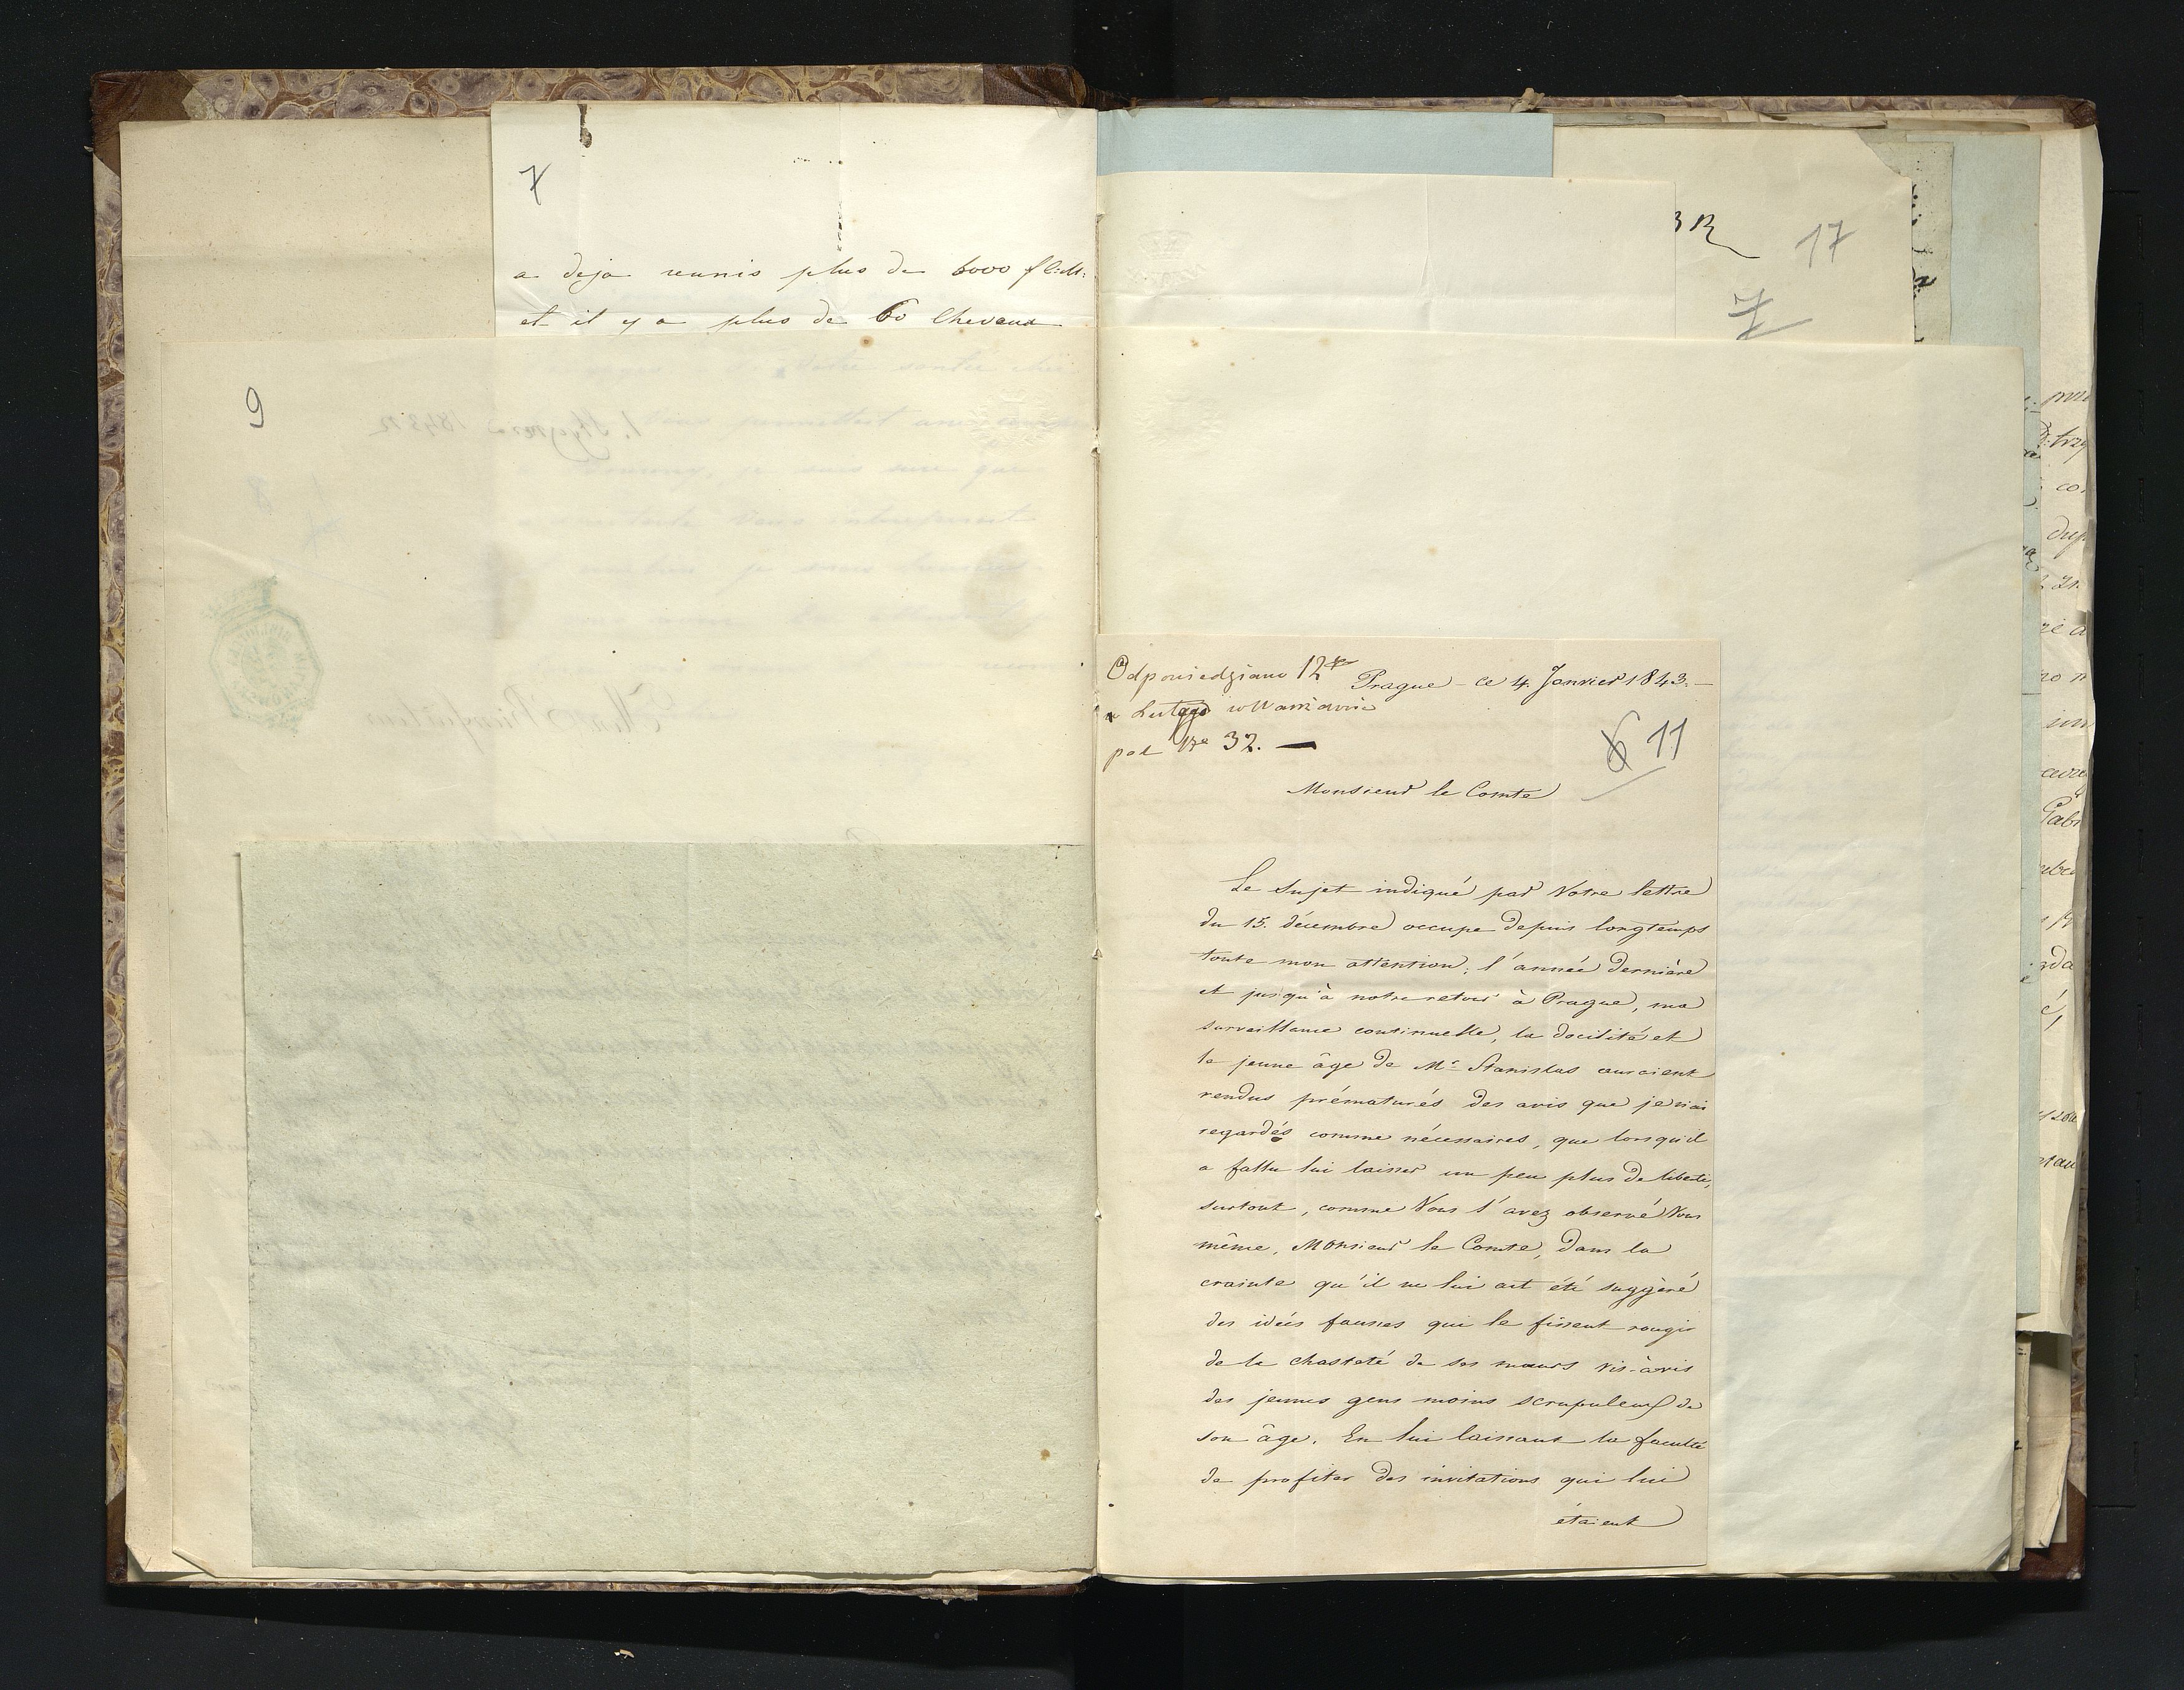 7
a deja reunis plus de 6000 fl:M:
et il y a plus de 60 Chevaux
9
17
7
Odpowiedziano 12go
Lutego w Warszawie
pod Nre 32. —
Prague - ce 4. Janvier 1843. —
6 11
Monsieur le Comte
Le sujet indiqué par Votre lettre
du 15. décembre occupe depuis longtemps
toute mon attention; l'année dernière
et jusqu'à notre retour à Prague, ma
surveillance continuelle, la docilité et
le jeune âge de Mr Stanislas auraient
rendus prématurés des avis que je n'ai
regardés comme nécessaires, que lorsqu'il
a fallu lui laisser un peu plus de liberté,
surtout, comme Vous l'avez observé Vous
même, Monsieur le Comte, dans la
crainte qu'il ne lui ait été suggéré
des idées fausses qui le fissent rougir
de la chasteté de ses mœurs vis-à-vis
des jeunes gens moins scrupuleux de
son âge. En lui laissant la faculté
de profiter des invitations qui lui
étaient